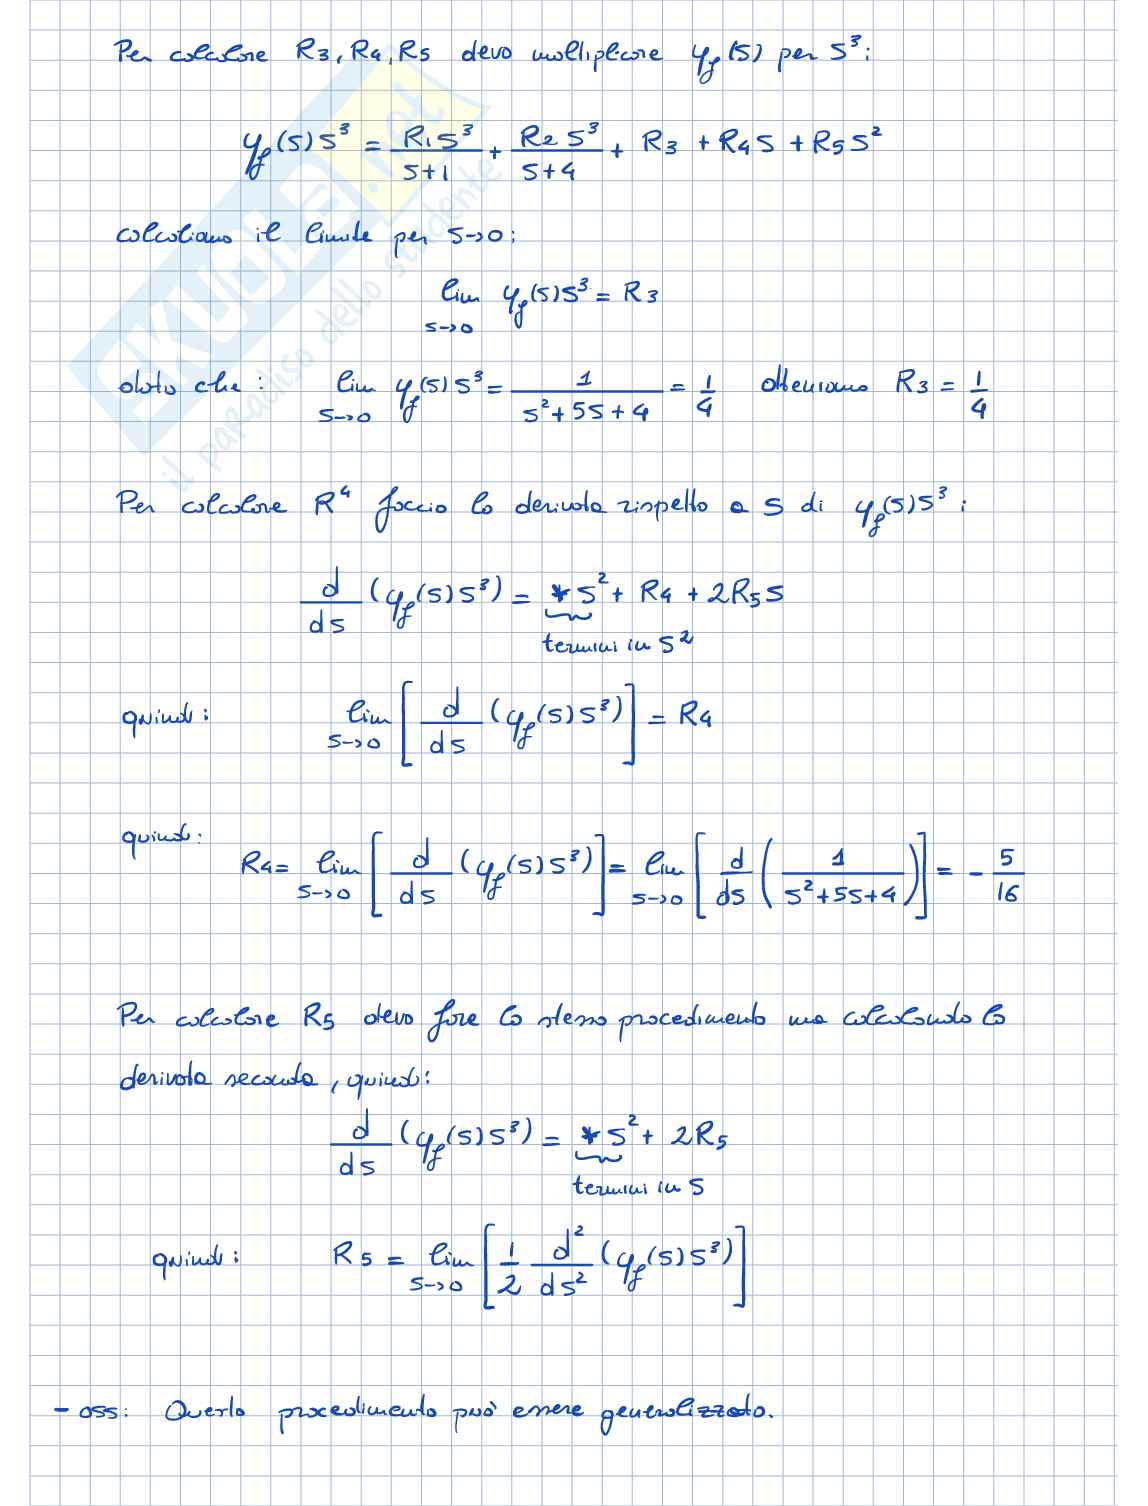 Per calcolare R3, R4, R5 devo moltiplicare yf(s) per s³:
yf(s)s³ = R1s³/(s+1) + R2s³/(s+4) + R3 + R4s + R5s²
calcoliamo il limite per s→0:
lim s→0 yf(s)s³ = R3
dato che: lim s→0 yf(s)s³ = 1/(s²+5s+4) = 1/4 otteniamo R3 = 1/4
Per calcolare R⁴ faccio la derivata rispetto a s di yf(s)s³:
d/ds (yf(s)s³) = *s² + R4 + 2R5s
termini in s²
quindi: lim s→0 [d/ds (yf(s)s³)] = R4
quindi:
R4 = lim s→0 [d/ds (yf(s)s³)] = lim s→0 [d/ds (1/(s²+5s+4))] = -5/16
Per calcolare R5 devo fare lo stesso procedimento ma calcolando la
derivata seconda, quindi:
d/ds (yf(s)s³) = *s² + 2R5
termini in s
quindi: R5 = lim s→0 [1/2 d²/ds² (yf(s)s³)]
- oss: Questo procedimento può essere generalizzato.
SKUOLA.net
il paradiso dello studente